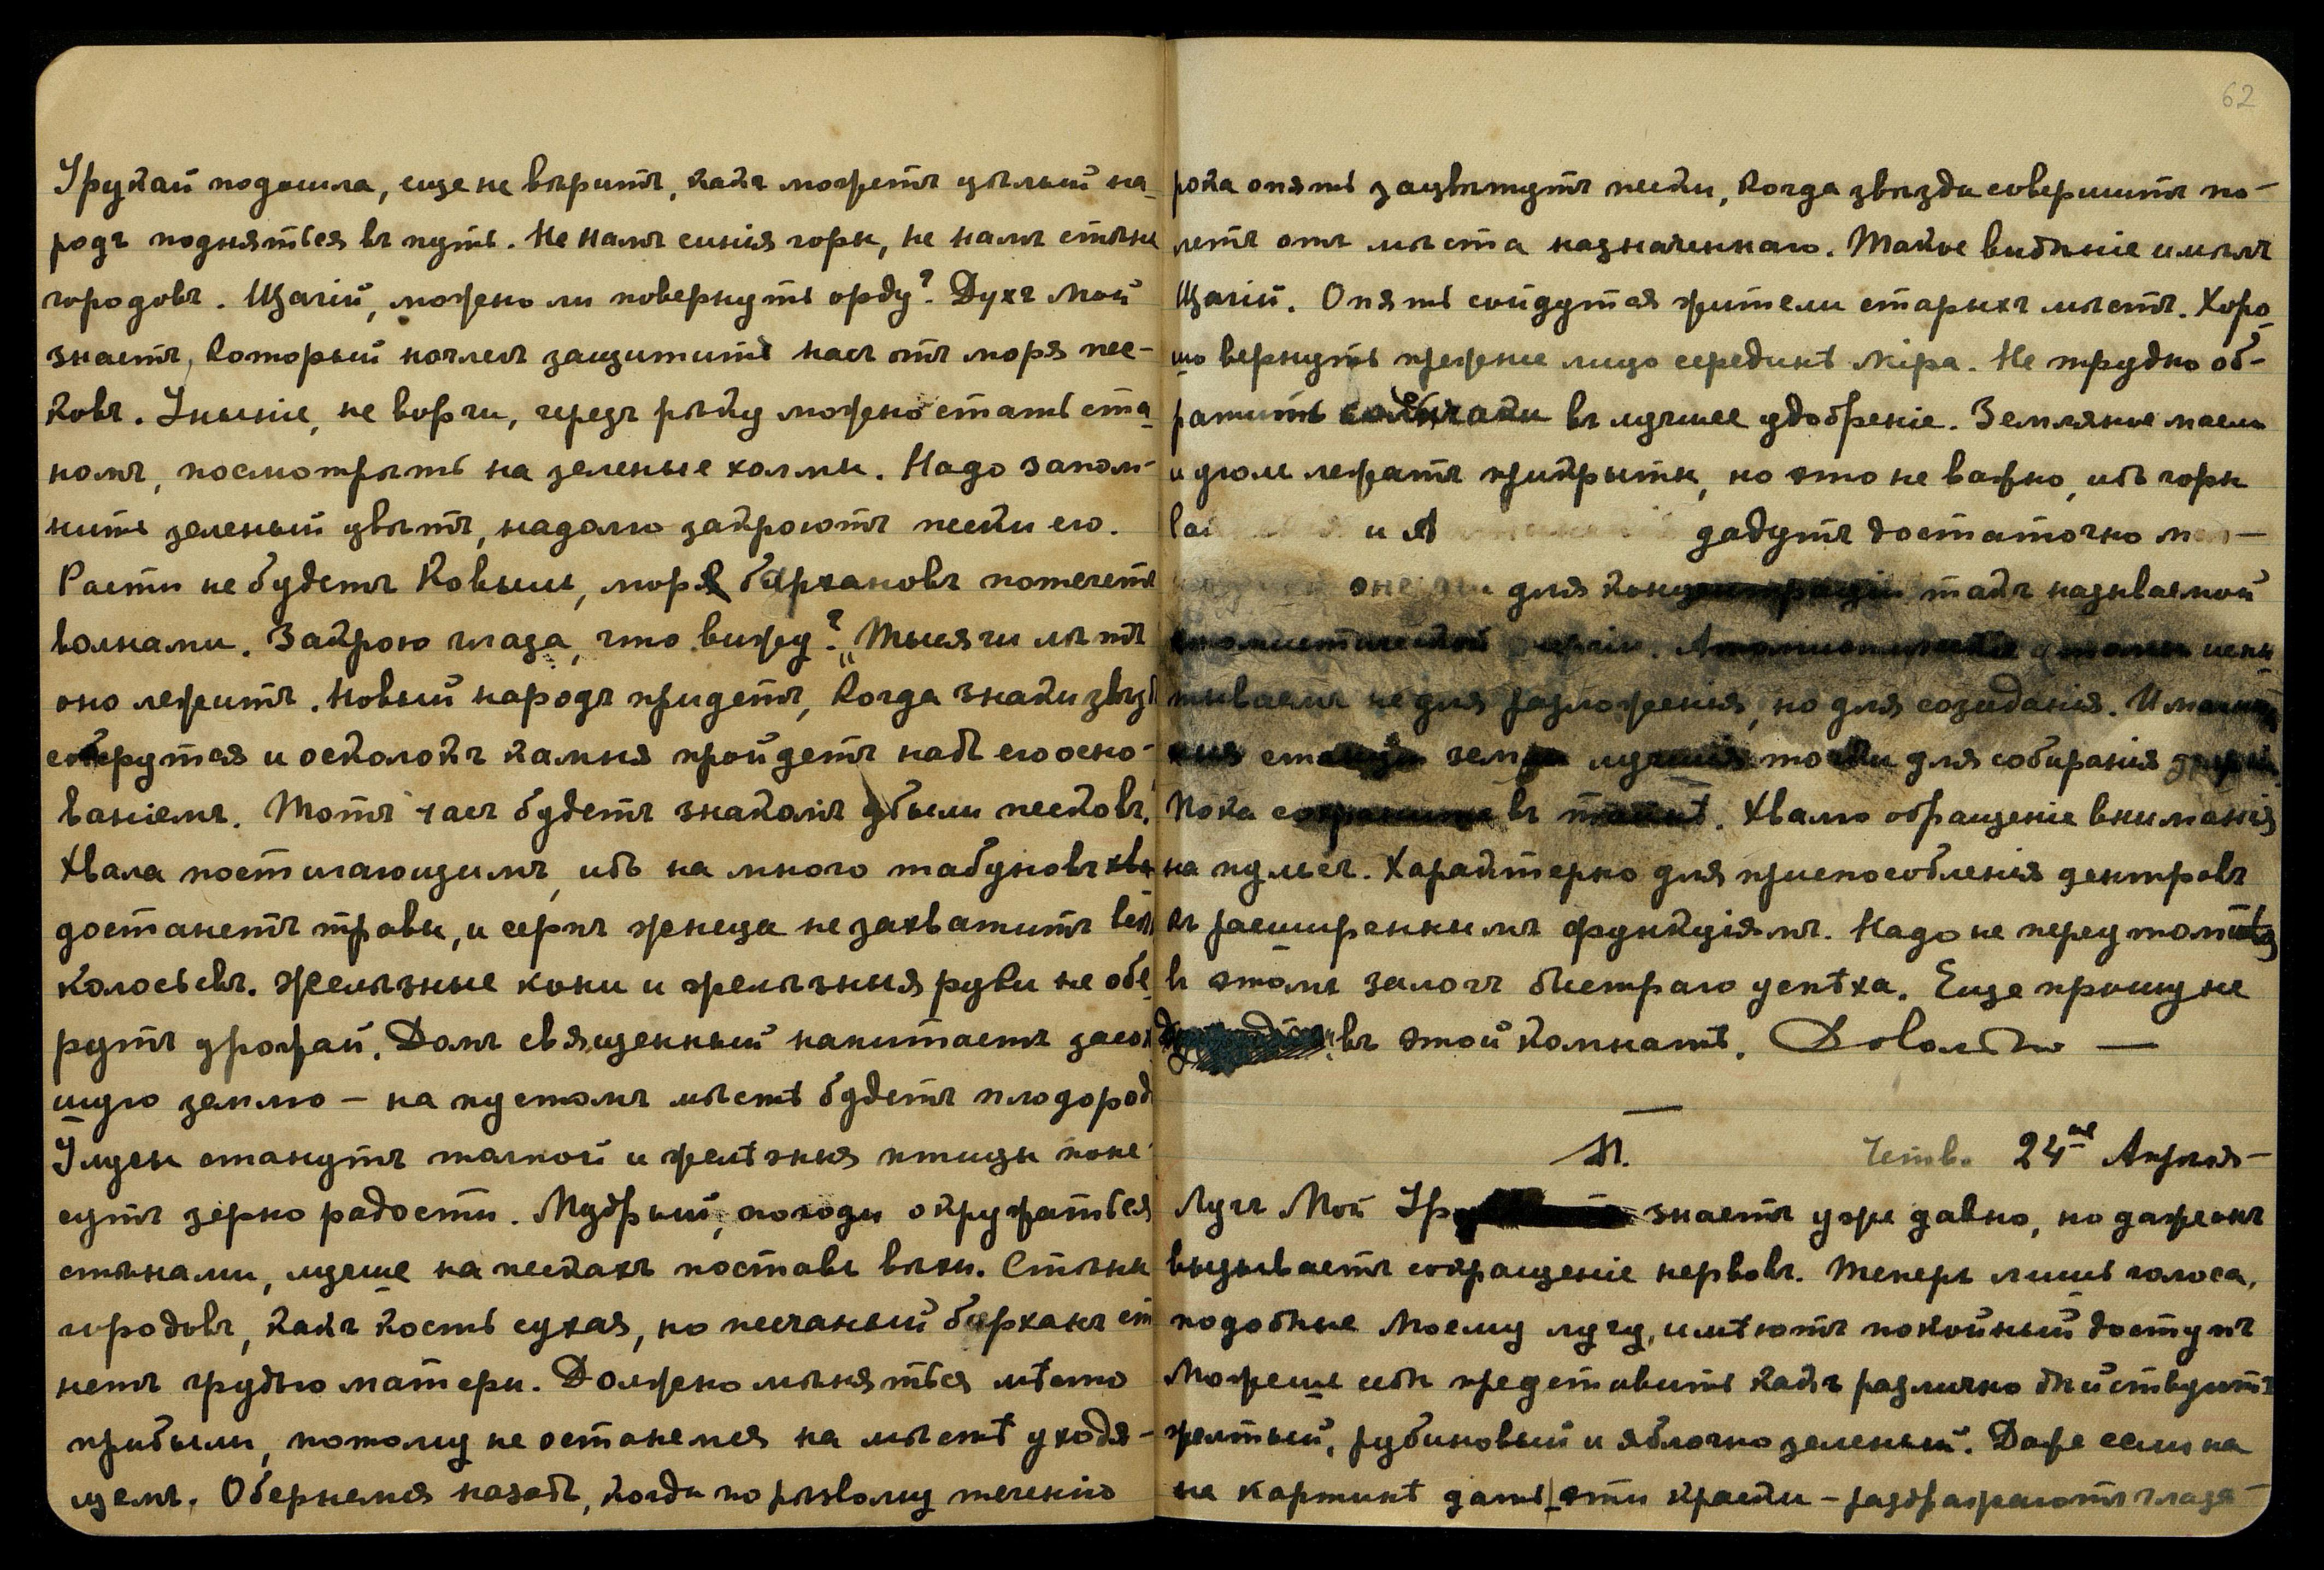 Урукай подошла, еще не вѣритъ, какъ можетъ цѣлый на-
родъ подняться въ путь. Не намъ синія горы, не намъ стѣны
городовъ. Щагій, можно ли повернуть орду? Духъ мой
знаетъ, который ночлегъ защититъ насъ отъ моря пес-
ковъ. Уныніе, не ворчи, черезъ рѣку можно стать ста-
номъ, посмотрѣть на зеленые холмы. Надо запом-
нить зеленый цвѣтъ, надолго закроютъ пески его.
Расти не будетъ ковыль, моря бархановъ потечетъ
волнами. Закрою глаза, что вижу? „Тысячи лѣтъ
оно лежитъ. Новый народъ придетъ, когда знаки звѣзд
сберутся и осколокъ камня пройдетъ надъ его осно-
ваніемъ. Тотъ часъ будетъ знакомъ убыли песковъ.
Хвала постигающимъ, ибо на много табуновъ хва
достанетъ травы, и серпъ жнеца не захватитъ всѣхъ
колосьевъ. Желѣзные кони и желѣзныя руки не обе-
рутъ урожай. Домъ священный напитаетъ засох
шую землю – на пустомъ мѣстѣ будетъ плодород
Улусы станутъ толпой и желѣзныя птицы поне-
сутъ зерно радости. Мудрый, походи окружаться
стѣнами, лучше на пескахъ поставь вѣхи. Стѣны
городовъ, какъ кость сухая, но песчаный барханъ ст
нетъ грудью матери. Должно мѣняться мѣсто
прибыли, потому не останемся на мѣстѣ уходя-
щемъ. Обернемся назадъ, когда по рѣзвому теченію
62
рока опять зацвѣтутъ пески, когда звѣзда совершитъ по-
летъ отъ мѣста назначеннаго. Такое видѣніе имѣлъ
Щагій. Опять сойдутся жители старыхъ мѣстъ. Хоро-
шо вернуть прежнее лицо серединѣ міра. Не трудно об-
ратить солончаки въ лучшее удобреніе. Земляные масла
и уголь лежатъ прикрыты, но это не важно, ибо горы
и А дадутъ достаточно
для так называемой
не для разложенія, но для созиданія.
для собиранія
Пока въ тайнѣ. Хвалю обращеніе вниманія
на пульсъ. Характерно для приспособленія центровъ
къ расширеннымъ функціямъ. Надо не переутомиться
въ этомъ залогъ быстраго успѣха. Еще прошу не
въ этой комнатѣ. Довольно —
М. Четв. 24ое Апрѣля –
Лучъ Мой Ур знаетъ уже давно, но даже онъ
вызываетъ сокращеніе нервовъ. Теперь лишь голоса,
подобные Моему лучу, имѣютъ покойный доступъ
Можешь себѣ представить какъ различно дѣйствуютъ
желтый, рубиновый и яблочно зеленый. Даже если на
на картинѣ дать эти краски – раздражаютъ глаза –